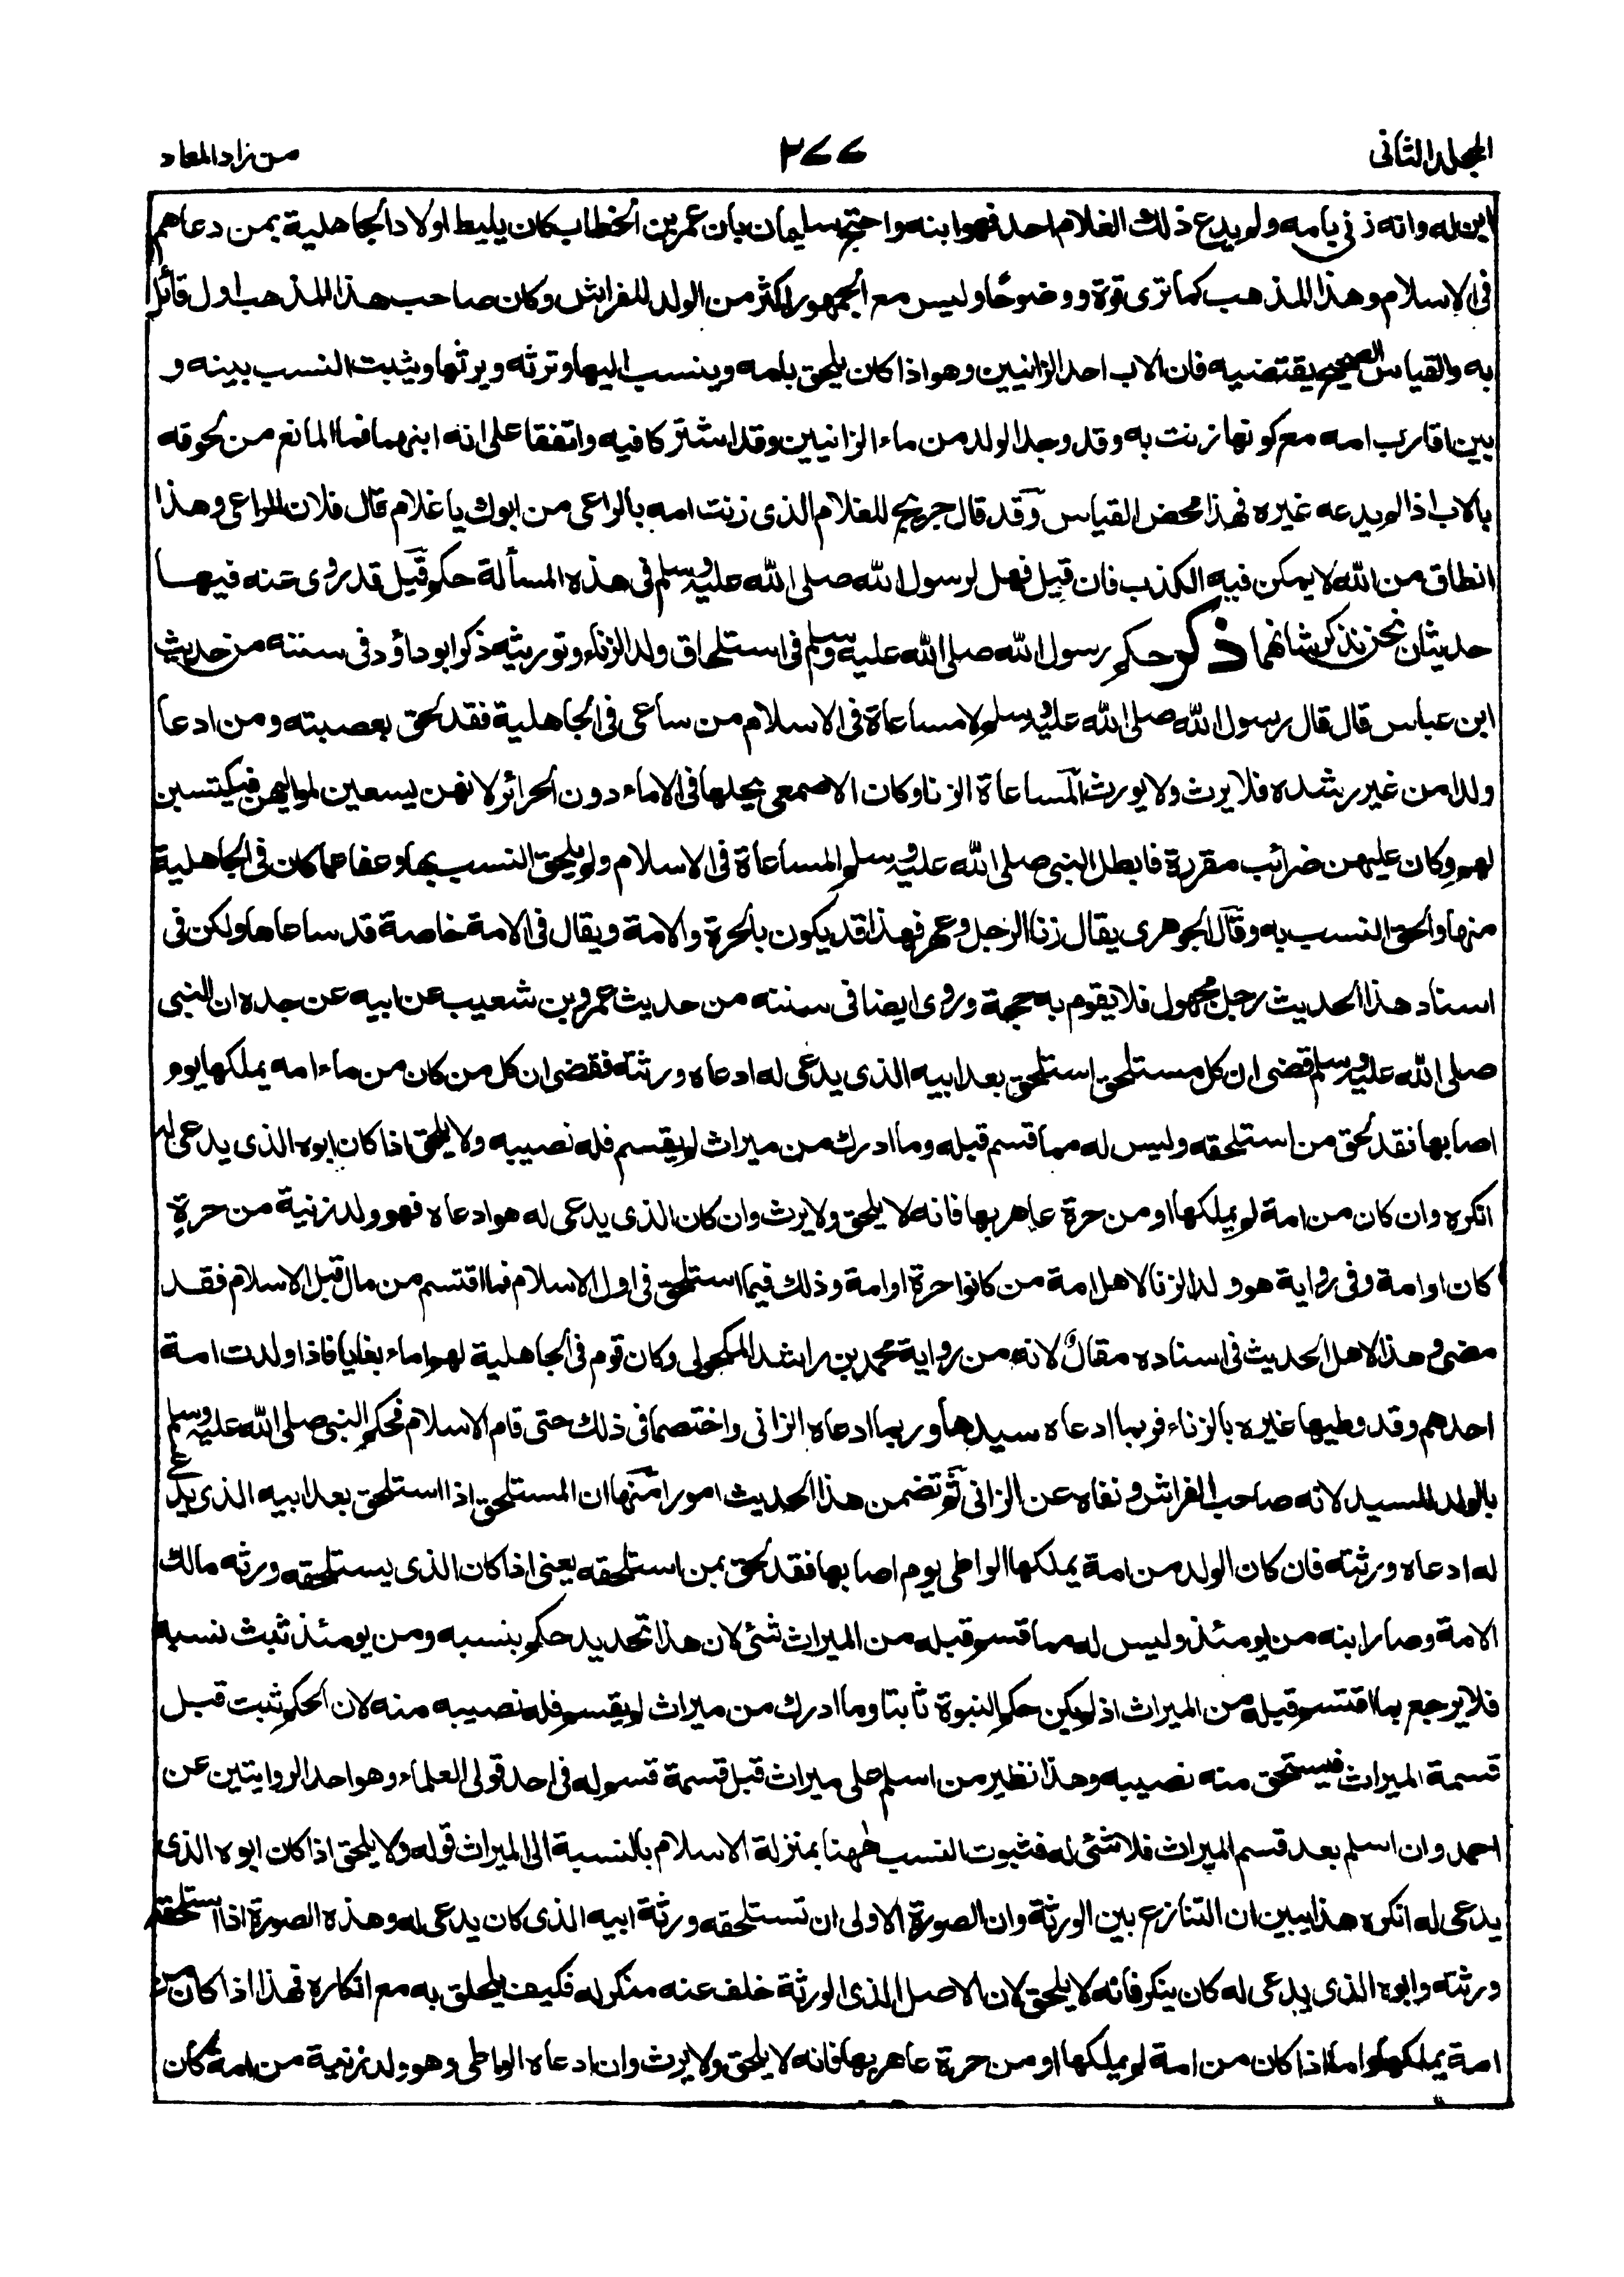 المجلد الثانی
٢٧٧
من زاد المعاد
ابن له وانه زنی بامه ولم يدع ذلك الغلام احد فهو ابنه واحتج سليمان بان عمر بن الخطاب كان يليط اولاد الجاهلية بمن دعاهم
فی الاسلام وهذا المذهب كما تری قوة ووضوحًا وليس مع الجمهور اكثر من الولد للفراش وكان صاحب هذا المذهب اول قائل
به والقياس الصحيح يقتضيه فان الاب احد الزانيين وهو اذا كان يلحق بامه وينسب اليها وترثه ويرثها ويثبت النسب بينه و
بين اقارب امه مع كونها زنت به وقد وجد الولد من ماء الزانيين وقد اشتركا فيه واتفقا علی انه ابنهما فما المانع من لحوقه
بالاب اذا لم يدعه غيره فهذا محض القياس وقد قال جريج للغلام الذی زنت امه بالراعی من ابوك يا غلام قال فلان الراعی وهذا
انطاق من الله لا يمكن فيه الكذب فان قيل فهل لرسول الله صلی الله عليه وسلم فی هذه المسألة حكم قيل قد روی عنه فيها
حديثان نحن نذكر شانهما ذكر حكم رسول الله صلی الله عليه وسلم فی استلحاق ولد الزناء وتوريثه ذكر ابو داؤد فی سننه من حديث
ابن عباس قال قال رسول الله صلی الله عليه وسلم لا مساعاة فی الاسلام من ساعی فی الجاهلية فقد لحق بعصبته ومن ادعا
ولدا من غير رشده فلا يرث ولا يورث المساعاة الزنا وكان الاصمعی يجعلها فی الاماء دون الحرائر لانهن يسعين لمواليهن فيكتسبن
لهم وكان عليهن ضرائب مقررة فابطل النبی صلی الله عليه وسلم المساعاة فی الاسلام ولم يلحق النسب بها وعفا عما كان فی الجاهلية
منها والحق النسب به وقال الجوهری يقال زنا الرجل وعهر فهذا قد يكون بالحرة والامة ويقال فی الامة خاصة قد ساعاها ولكن فی
اسناد هذا الحديث رجل مجهول فلا يقوم به حجة وروی ايضا فی سننه من حديث عمرو بن شعيب عن ابيه عن جده ان النبی
صلی الله عليه وسلم قضی ان كل مستلحق استلحق بعد ابيه الذی يدعی له ادعاه ورثته فقضی ان كل من كان من ماء امه يملكها يوم
اصابها فقد لحق من استلحقه وليس له مما قسم قبله وما ادرك من ميراث لم يقسم فله نصيبه ولا يلحق اذا كان ابوه الذی يدعی له
انكره وان كان من امة لم يملكها او من حرة عاهر بها فانه لا يلحق ولا يرث وان كان الذی يدعی له هو ادعاه فهو ولد زنية من حرة
كان او امة وفی رواية هو ولد الزنا لاهل امة من كانوا حرة او امة وذلك فيما استلحق فی اول الاسلام فما اقتسم من مال قبل الاسلام فقد
مضی وهذا لاهل الحديث فی اسناده مقال لانه من رواية محمد بن راشد المكحولی وكان قوم فی الجاهلية لهم اماء بغايا فاذا ولدت امة
احدهم وقد وطيها غيره بالزناء فربما ادعاه سيدها وربما ادعاه الزانی واختصما فی ذلك حتی قام الاسلام فحكم النبی صلی الله عليه وسلم
بالولد للسيد لانه صاحب الفراش ونفاه عن الزانی ثم تضمن هذا الحديث امورا منها ان المستلحق اذا استلحق بعد ابيه الذی يدعی
له ادعاه ورثته فان كان الولد من امة يملكها الواطی يوم اصابها فقد لحق بمن استلحقه يعنی اذا كان الذی يستلحقه ورثه مالك
الامة وصار ابنه من يومئذ وليس له مما قسم قبله من الميراث شئ لان هذا تجديد حكم بنسبه ومن يومئذ ثبت نسبه
فلا يرجع بما اقتسم قبله من الميراث اذ لم يكن حكم النبوة ثابتا وما ادرك من ميراث لم يقسم فله نصيبه منه لان الحكم ثبت قبل
قسمة الميراث فيستحق منه نصيبه وهذا نظير من اسلم علی ميراث قبل قسمة قسم له فی احد قولی العلماء وهو احد الروايتين عن
احمد وان اسلم بعد قسم الميراث فلا شئ له فثبوت النسب ههنا بمنزلة الاسلام بالنسبة الی الميراث قوله ولا يلحق اذا كان ابوه الذی
يدعی له انكره هذا يبين ان التنازع بين الورثة وان الصورة الاولی ان تستلحقه ورثة ابيه الذی كان يدعی له وهذه الصورة اذا استلحقه
ورثته وابوه الذی يدعی له كان ينكر فانه لا يلحق لان الاصل الذی الورثة خلف عنه منكر له فكيف يلحق به مع انكاره فهذا اذا كان من
امة يملكها واما اذا كان من امة لم يملكها او من حرة عاهر بها فانه لا يلحق ولا يرث وان ادعاه الواطی وهو ولد زنية من امة كان